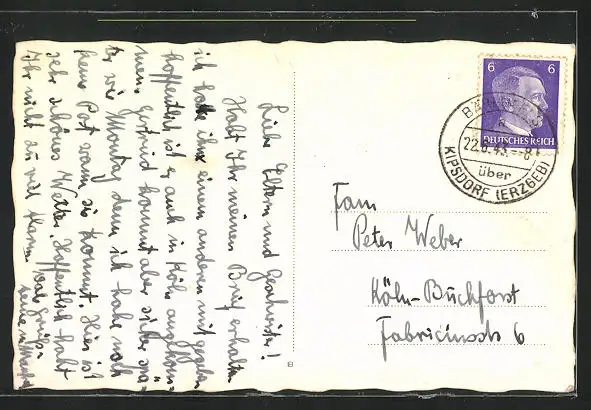 Liebe Eltern und Geschwister!
Habt Ihr meinen Brief erhalten
ich habe ihn einem anderen mit gegeben
hoffentlich ist er auch in Köln angekom=
men. Gertrud kommt aber sicher
Montag denn ich habe noch
keine Post wann sie kommt. Hier ist
sehr schönes Wetter. Hoffentlich habt
Ihr nicht zu viel Alarm. Viele Grüße
6 6
DEUTSCHES REICH
22.6.43.-8
über
KIPSDORF (ERZGEB)
Fam
Peter Weber
Köln-Buchforst
Fabriciusstr 6